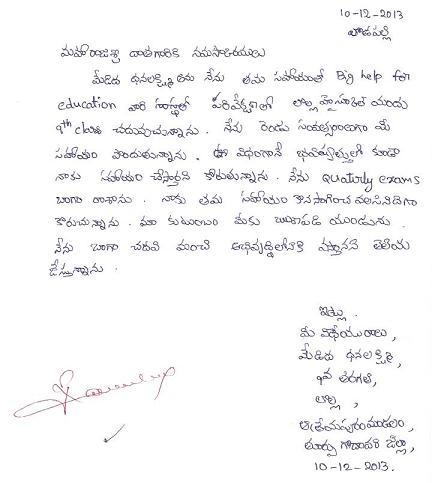 10-12-2013
లొడపల్లి
మహారాజశ్రీ దాతగారికి నమస్కారములు
మేడిద ధనలక్ష్మి అను నేను తమ సహాయంతో Big help for
education వారి సంస్థలో పర్యవేక్షణలో లొల్ల హైస్కూల్ యందు
9th class చదువుచున్నాను. నేను రెండు సంవత్సరాలుగా మీ
సహాయం పొందుతున్నాను. ఈ విధంగానే భవిష్యత్తులో కూడా
నాకు సహాయం చేస్తారని కోరుతున్నాను. నేను Quaturly exams
బాగా రాశాను. నాకు తమ సహాయం కొనసాగించ వలసినదిగా
కోరుచున్నాను. మా కుటుంబం మీకు ఋణపడి యుండును.
నేను బాగా చదివి మంచి అభివృద్ధిలోకి వస్తానని తెలియ
జేస్తున్నాను.
ఇట్లు.
మీ విధేయురాలు,
మేడిద ధనలక్ష్మి,
9వ తరగతి,
లొల్ల,
ఆత్రేయపురం మండలం,
తూర్పు గోదావరి జిల్లా,
10-12-2013.